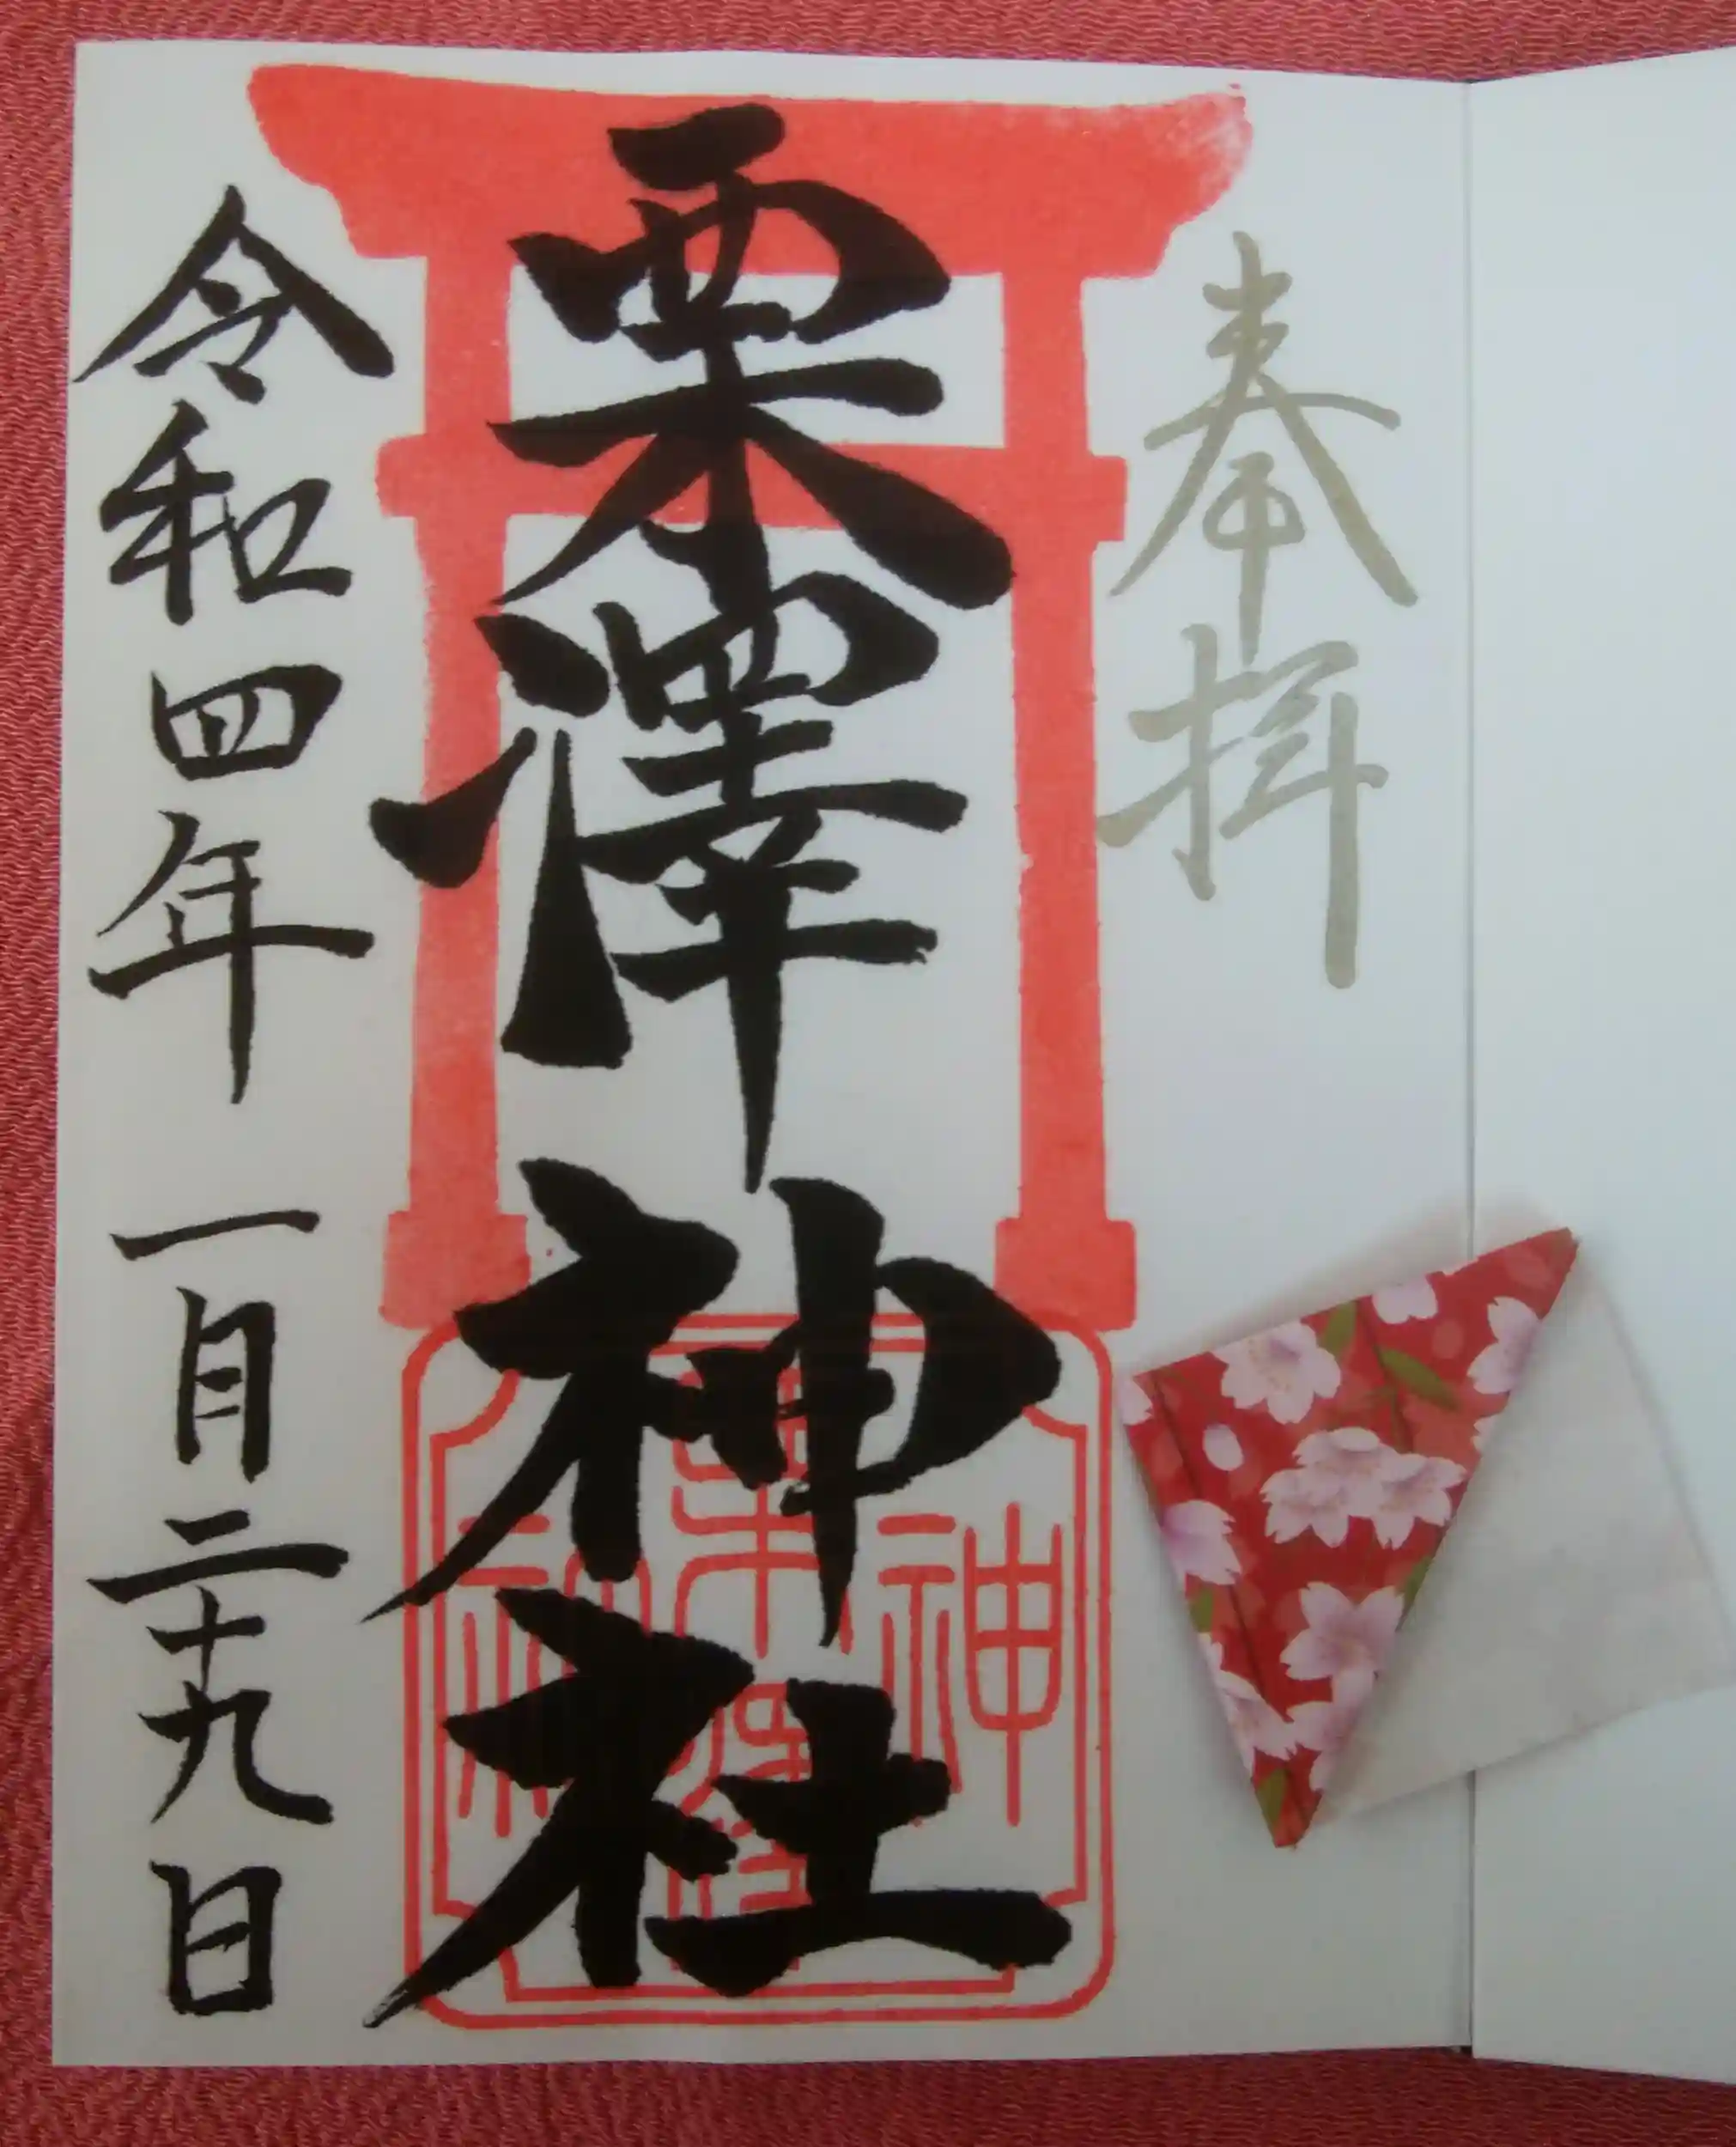 奉拝
栗澤神社
令和四年 一月二十九日
栗澤
神
社